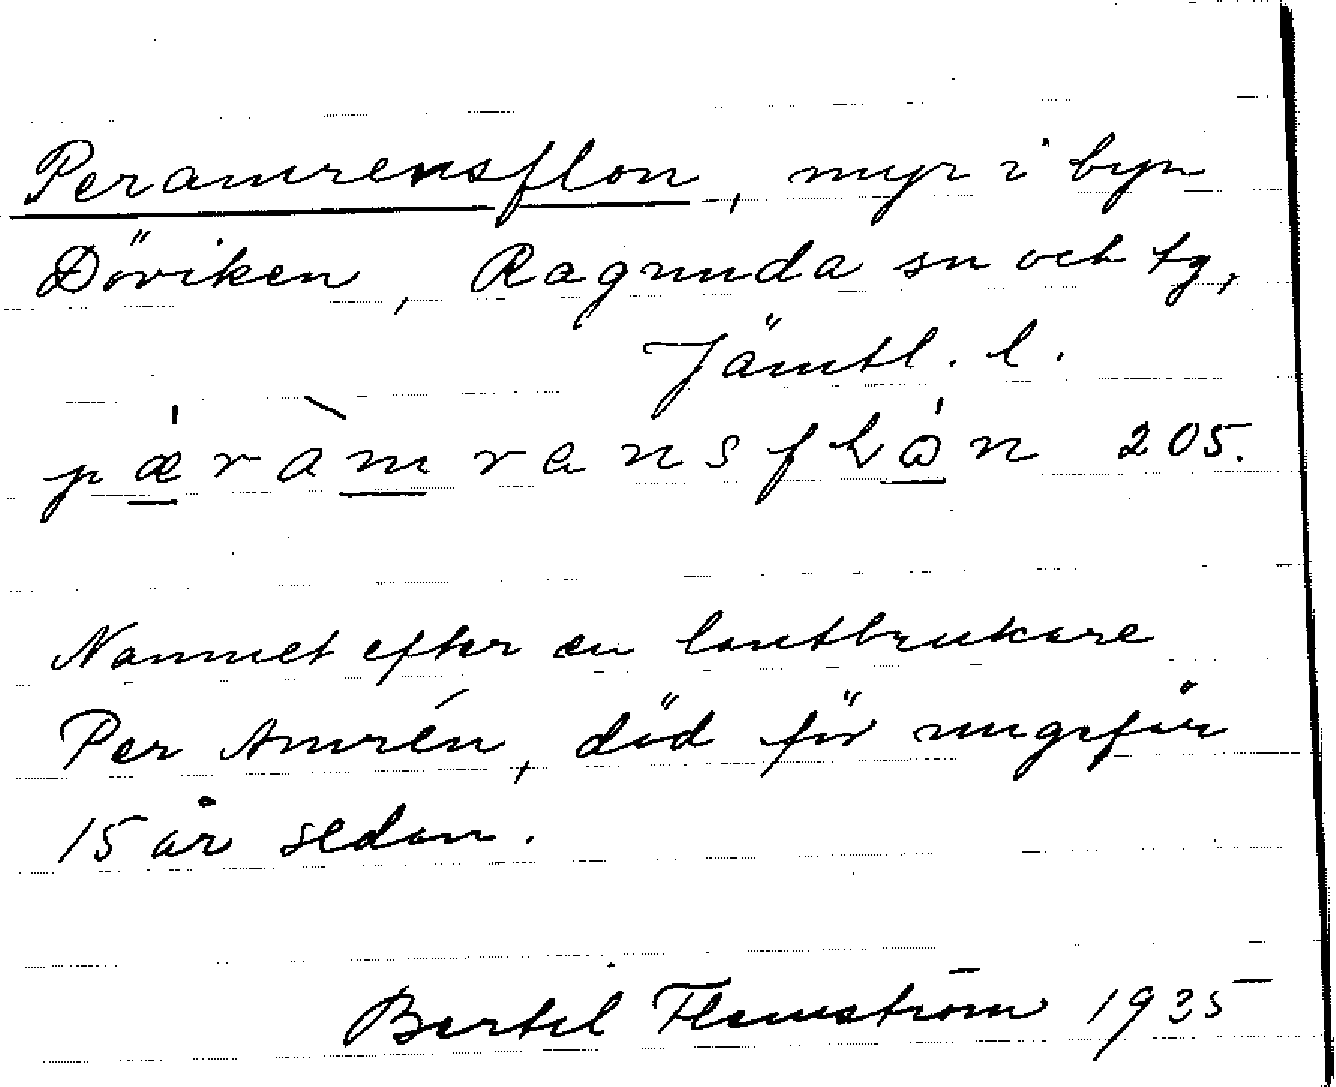 Peramrensflon, myr i byn
Döviken, Ragunda sn och tg,
Jämtl. l.
205.
Namnet efter en lantbrukare
Per Amrén, död för ungefär
15 år sedan.
Bertel Flemström 1935